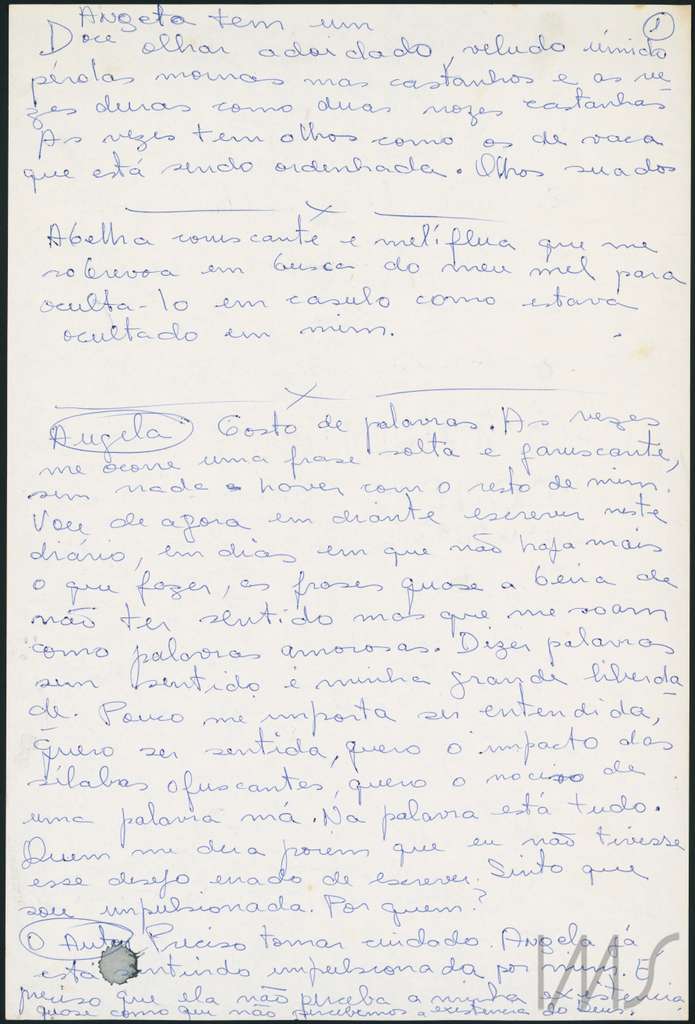 Angela tem um
1
Doce olhar adoidado, veludo úmido
pérolas mornas mas castanhos e as ve-
zes duras como duas nozes castanhas
As vezes tem olhos como os de vaca
que está sendo ordenhada. Olhos suados
Abelha coruscante e melíflua que me
sobrevoa em busca do meu mel para
oculta-lo em casulo como estava
ocultado em mim.
Angela Gosto de palavras. As vezes
me ocorre uma frase solta e faruscante,
sem nada a haver com o resto de mim.
Vou de agora em diante escrever neste
diário, em dias em que não haja mais
o que fazer, as frases quase a beira de
não ter sentido mas que me soam
como palavras amorosas. Dizer palavras
sem sentido é minha grande liberda
de. Pouco me importa ser entendida,
quero ser sentida, quero o impacto das
sílabas ofuscantes, quero o nocivo de
uma palavra má. Na palavra está tudo.
Quem me dera porém que eu não tivesse
esse desejo errado de escrever. Sinto que
sou impulsionada. Por quem?
O Autor Preciso tomar cuidado. Angela já
está sentindo impulsionada por mim. É
preciso que ela não perceba a minha existencia
quase como que não percebemos a existencia do Deus.
IMS